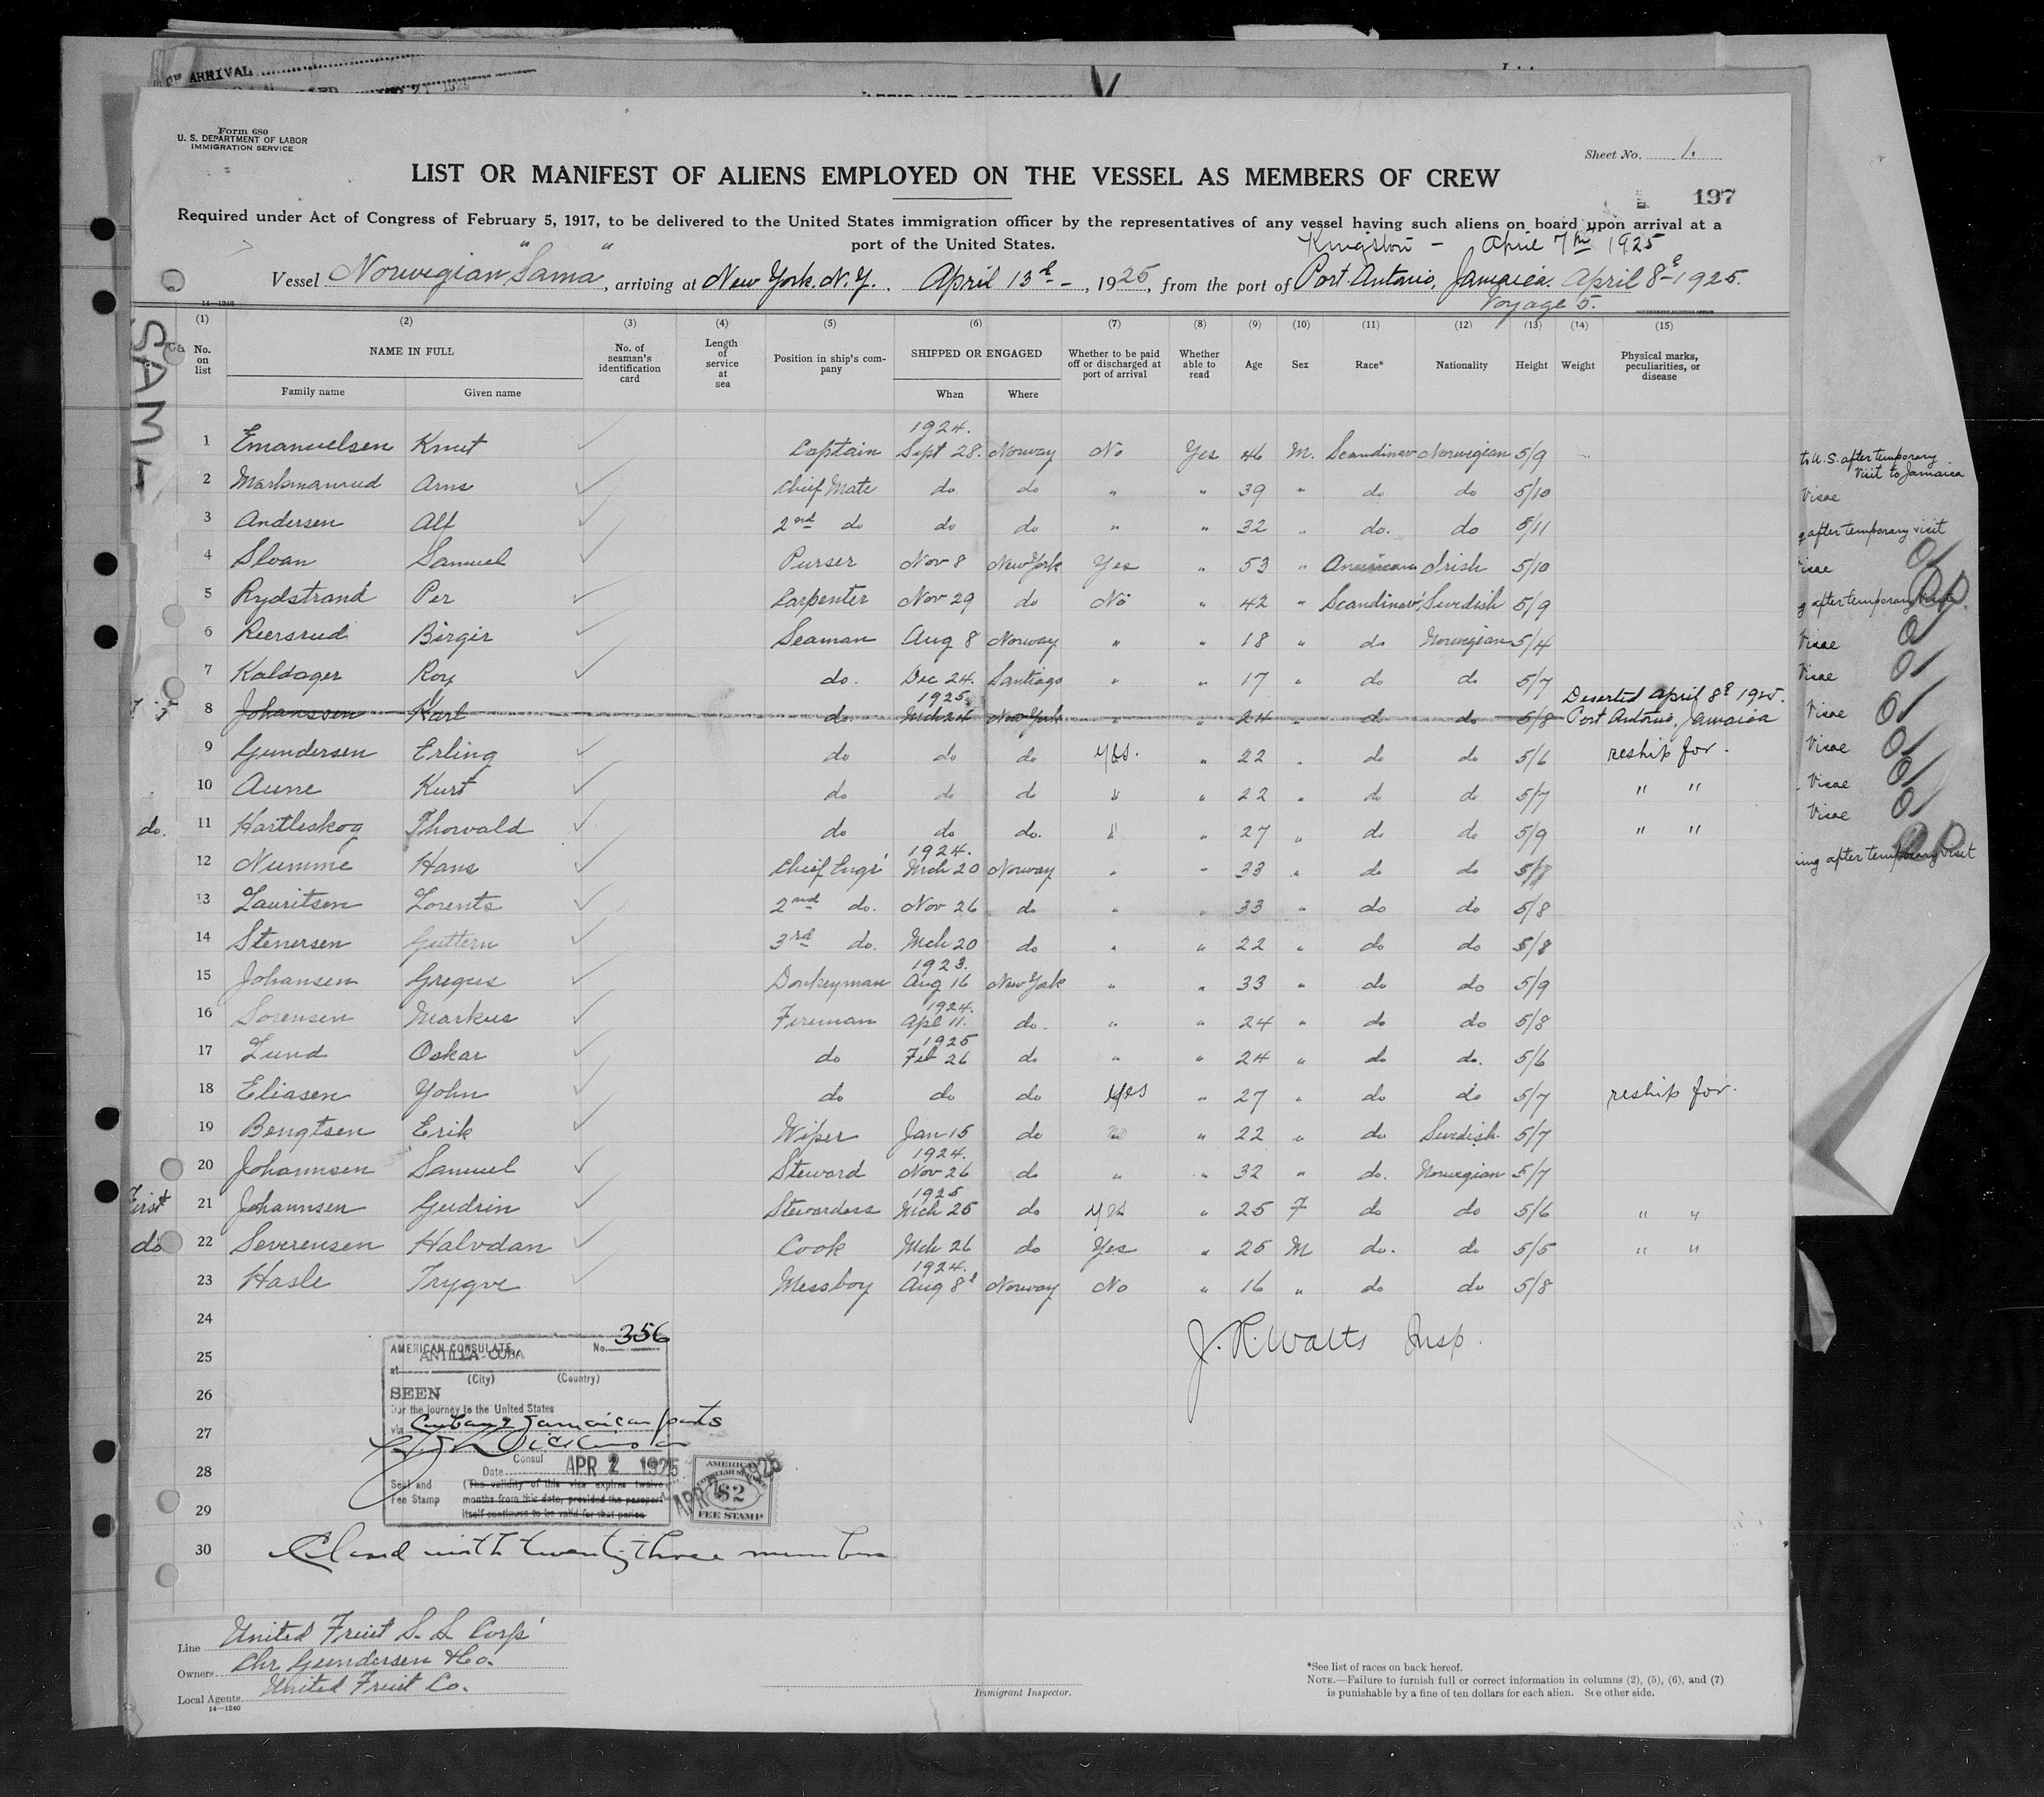 OF ARRIVAL
1925
Form 680
U. S. DEPARTMENT OF LABOR
IMMIGRATION SERVICE
Sheet No. 1.
LIST OR MANIFEST OF ALIENS EMPLOYED ON THE VESSEL AS MEMBERS OF CREW
197
Required under Act of Congress of February 5, 1917, to be delivered to the United States immigration officer by the representatives of any vessel having such aliens on board upon arrival at a
port of the United States.
Kingston - April 7th 1925
Vessel Norwegian "Sama", arriving at New York, N.Y. April 13th, 1925, from the port of Port Antonio, Jamaica. April 8th 1925.
Voyage 5.
14-1240
GOVERNMENT PRINTING OFFICE
SAMA
(1) (2) (3) (4) (5) (6) (7) (8) (9) (10) (11) (12) (13) (14) (15)
No. on list NAME IN FULL No. of seaman's identification card Length of service at sea Position in ship's company SHIPPED OR ENGAGED Whether to be paid off or discharged at port of arrival Whether able to read Age Sex Race* Nationality Height Weight Physical marks, peculiarities, or disease
Family name Given name When Where
1924.
1 Emanuelsen Knut Captain Sept 28. Norway No Yes 46 M. Scandinav Norwegian 5/9
2 Markmanrud Arns Chief Mate do do " " 39 " do do 5/10
3 Andersen Alf 2nd do do do " " 32 " do. do 5/11
4 Sloan Samuel Purser Nov 8 New York Yes " 53 " American Irish 5/10
5 Rydstrand Per Carpenter Nov 29 do No " 42 " Scandinav' Swedish 5/9
6 Reersrud Birgir Seaman Aug 8 Norway " " 18 " do Norwegian 5/4
7 Kaldager Roy do. Dec 24. Santiago " " 17 " do do 5/7
1925. Deserted April 8th 1925.
8 Johanssen Karl do. Mch 24 New York " " 24 " do do 5/8 Port Antonio, Jamaica
9 Gundersen Erling do do do yes. " 22 " do do 5/6 reship for.
10 Aune Kurt do do do " " 22 " do do 5/7 " "
do. 11 Hartleskog Thorvald do do do. " " 27 " do do 5/9 " "
1924.
12 Numme Hans Chief Engr' Mch 20 Norway " " 33 " do do 5/8
13 Lauritsen Lorents 2nd do. Nov 26 do " " 33 " do do 5/8
14 Stenersen Guttern 3rd do. Mch 20 do " " 22 " do do 5/8
1923.
15 Johansen Gregus Donkeyman Aug 16 New York " " 33 " do do 5/9
1924.
16 Sorensen Markus Fireman Apl 11. do. " " 24 " do do 5/8
1925
17 Lund Oskar do Feb 26 do " " 24 " do do. 5/6
18 Eliasen John do do do yes " 27 " do do 5/7 reship for.
19 Bengtsen Erik Wiper Jan 15 do No " 22 " do Swedish. 5/7
1924.
20 Johannsen Samuel Steward Nov 26 do " " 32 " do. Norwegian 5/7
1925
First 21 Johannsen Gudrin Stewardess Mch 25 do yes " 25 F do do 5/6 " "
do 22 Severensen Halvdan Cook Mch 26 do Yes " 25 M do. do 5/5 " "
1924.
23 Hasle Trygve Messboy Aug 8th Norway No " 16 " do do 5/8
24
J. R. Watts Insp.
25
26
27
28
29
30
356
AMERICAN CONSULATE No.
at ANTILLA-CUBA
(City) (Country)
SEEN
For the journey to the United States
via Cuban & Jamaican ports
Consul
Date APR 2 1925
Seal and Fee Stamp
(The validity of this visa expires twelve
months from this date, provided the passport
itself continues to be valid for that period.
AMERICAN
CONSULAR SERVICE
$2
FEE STAMP
APR 2 1925
Closed with twenty-three members
Line United Fruit S. S. Corp'
Owners Chr Gundersen & Co.
Local Agents United Fruit Co.
14-1240
Immigrant Inspector.
*See list of races on back hereof.
NOTE.—Failure to furnish full or correct information in columns (2), (5), (6), and (7)
is punishable by a fine of ten dollars for each alien. See other side.
to U.S. after temporary
Visit to Jamaica
Visae
after temporary visit
Visae
after temporary visit
Visae
Visae
Visae
Visae
Visae
Visae
ing after temporary visit